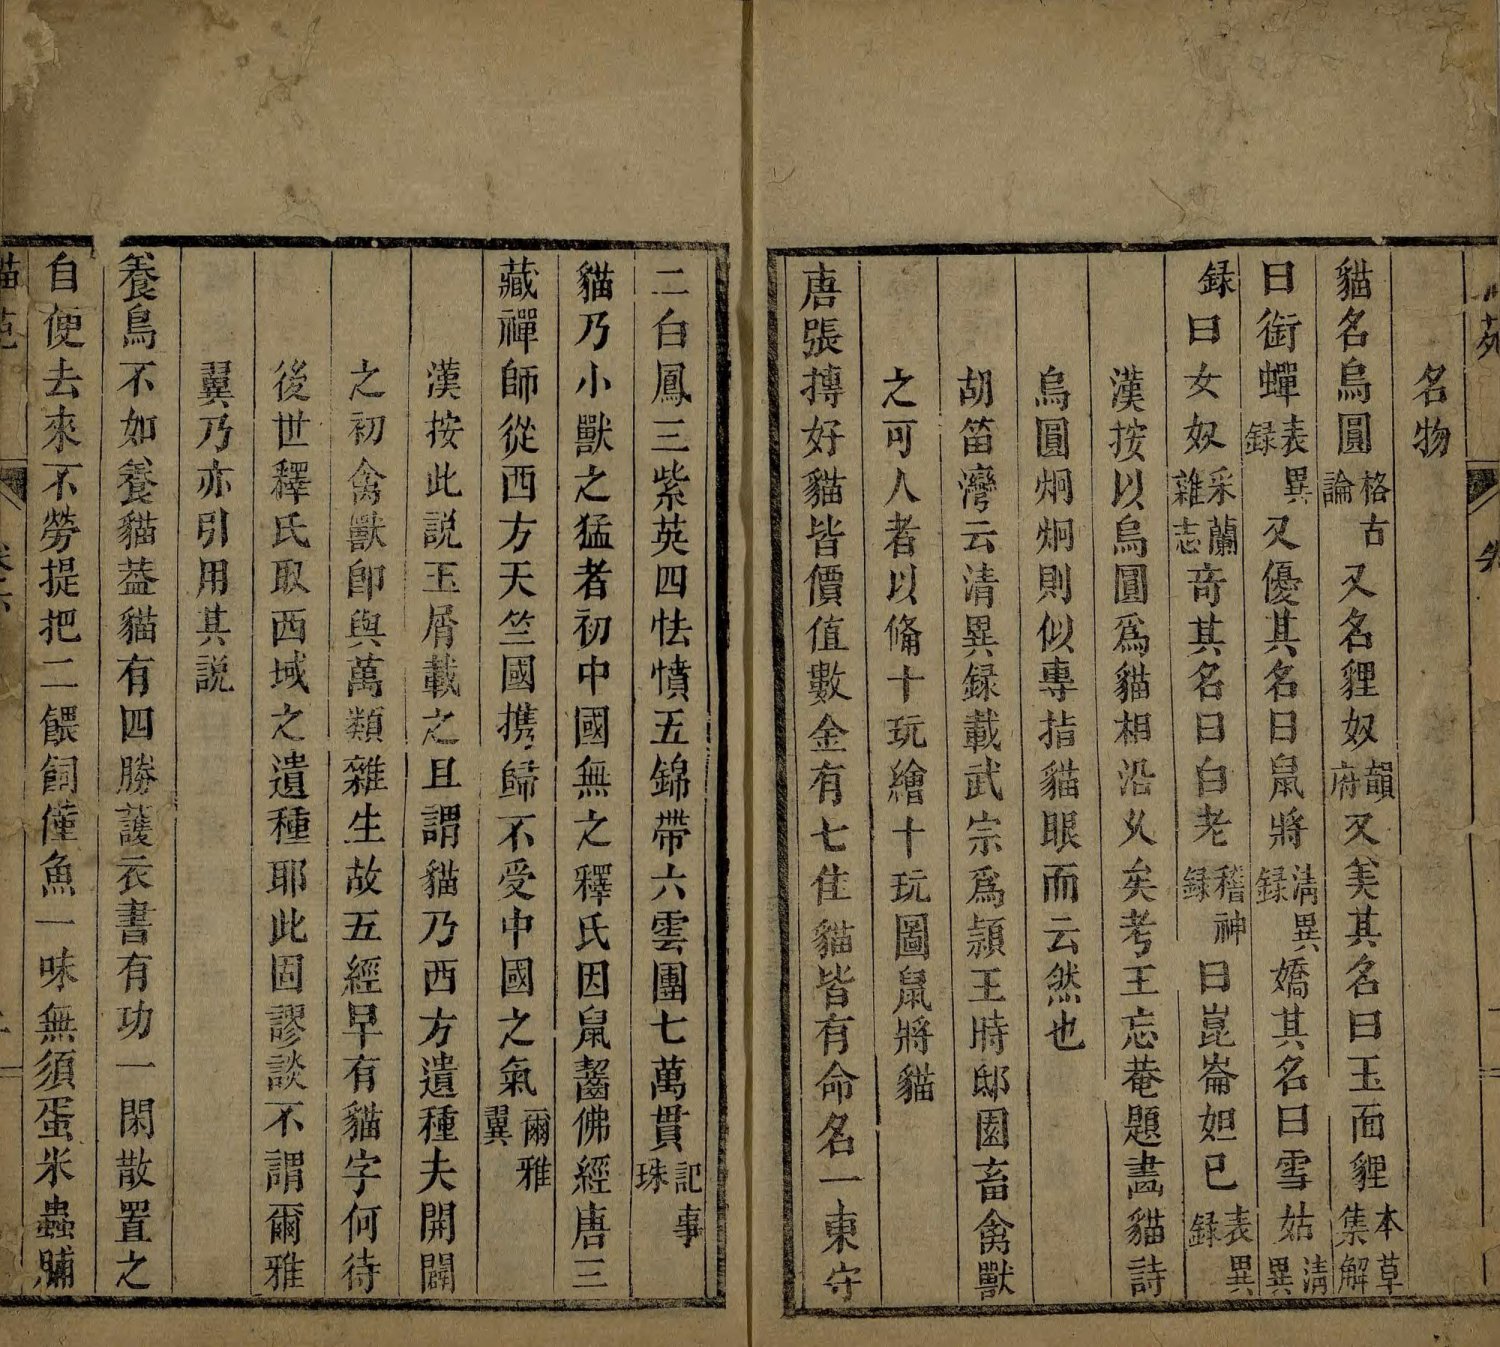 名物
貓名烏圓格古論又名貍奴韻府又美其名曰玉面貍本草集解
曰銜蟬表異録又優其名曰鼠將清異録嬌其名曰雪姑清異
録曰女奴采蘭雜志奇其名曰白老稽神録曰崑崙妲已表異録
漢按以烏圓爲貓相沿乆矣考王忘菴題畵貓詩
烏圓炯炯則似專指貓眼而云然也
胡笛灣云清異録載武宗爲頴王時邸園畜禽獸
之可人者以備十玩繪十玩圖鼠將貓
唐張搏好貓皆價值數金有七佳貓皆有命名一東守
二白鳳三紫英四怯憤五錦帶六雲團七萬貫記事珠
貓乃小獸之猛者初中國無之釋氏因鼠齧佛經唐三
藏禪師從西方天竺國携歸不受中國之氣爾雅翼
漢按此説玉屑載之且謂貓乃西方遺種夫開闢
之初禽獸卽與萬類雜生故五經早有貓字何待
後世釋氏取西域之遺種耶此固謬談不謂爾雅
翼乃亦引用其説
養鳥不如養貓葢貓有四勝護衣書有功一閑散置之
自便去來不勞提把二餵飼僅魚一味無須蛋米蟲脯